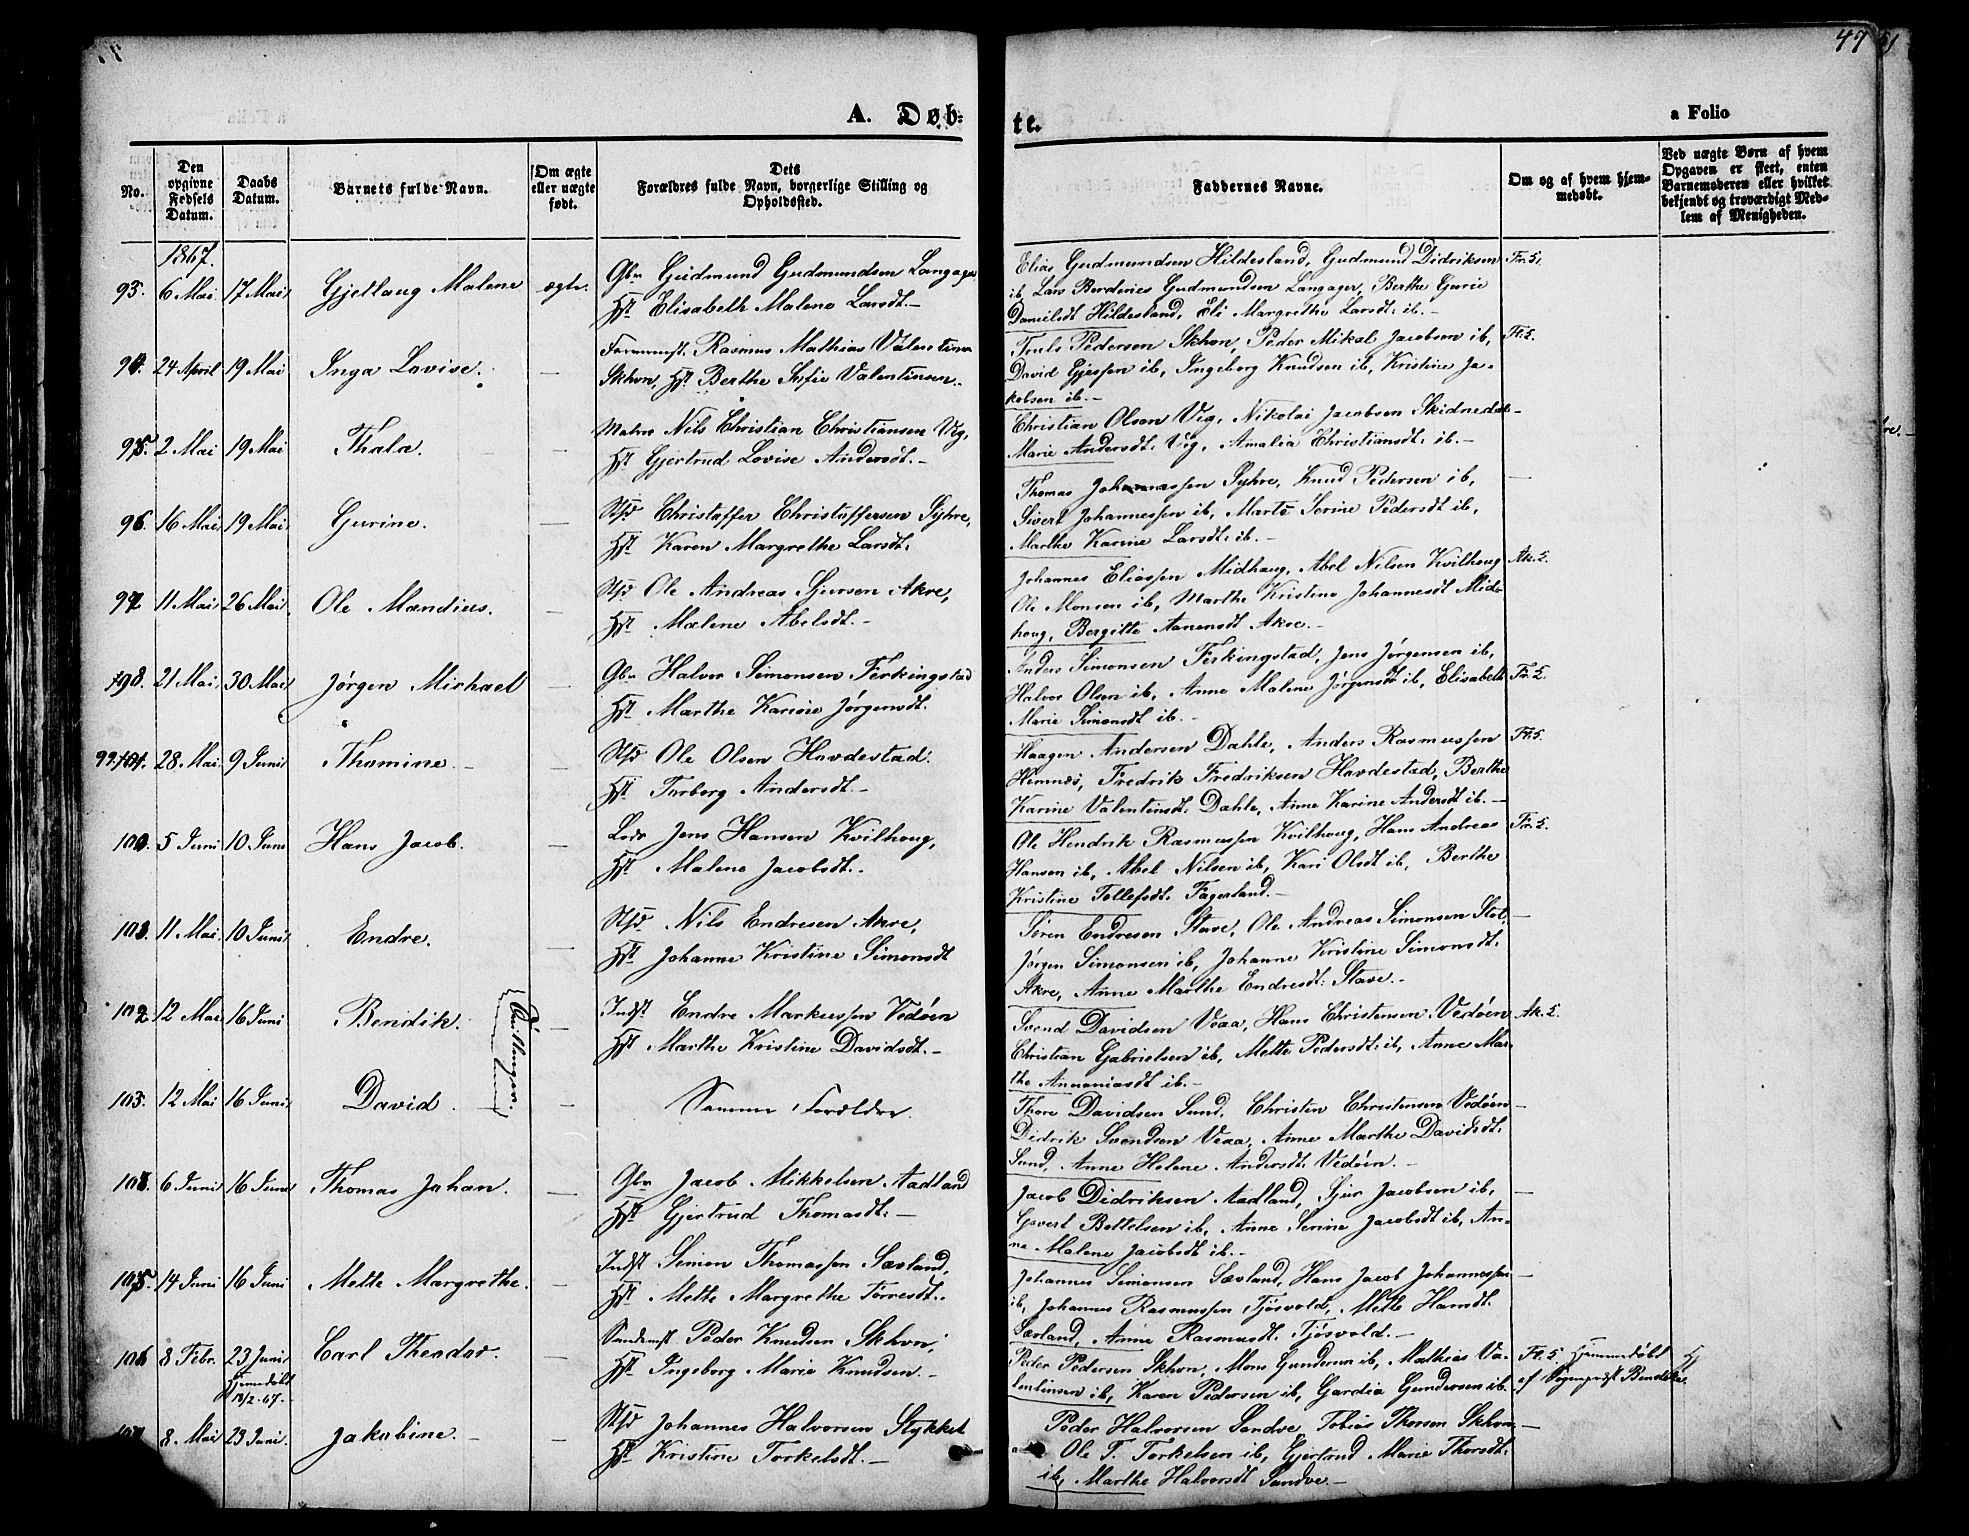 47 51
A. Døb=
te.
a Folio
No.
Den opgivne Fødsels Datum.
Daabs Datum.
Barnets fulde Navn.
Om ægte eller uægte født.
Dets Forældres fulde Navn, borgerlige Stilling og Opholdssted.
Faddernes Navne.
Om og af hvem hjemmedøbt.
Ved uægte Børn af hvem Opgaven er skeet, enten Barnemoderen eller hvilket bekjendt og troværdigt Medlem af Menigheden.
1867.
93. 6 Mai 17 Mai Gjetlaug Malene ægte. Gbr Gudmund Gudmundsen Langager
Hst Elisabeth Malene Larsdt. –
Elias Gudmundsen Hildesland, Gudmund Didriksen Fr. 5.
ib, Lars Berdines Gudmundsen Langager, Berthe Gurie
Danielsdt Hildesland, Eli Margrethe Larsdt: ib. –
94. 24 April 19 Mai Inga Lovise. – Rasmus Mathias Valentinsen
Skhvn, Hst. Berthe Sofie Valentinsen.
Truls Pedersen Skhvn, Peder Mikal Jacobsen ib, Fr. 5.
David Gjessen ib, Ingeborg Knudsen ib, Kristine Ja-
kobsen ib. –
95. 2 Mai 19 Mai Thala. – Nils Christian Christiansen Vig,
Hst. Gjertrud Lovise Andersdt. –
Christian Olsen Vig, Nikolai Jacobsen Skidnedal –
Marie Andersdt: Vig, Amalia Christiansdt: ib. –
96. 16 Mai 19 Mai Gurine. – Stfd Christaffer Christaffersen Syhre,
Hst. Karen Margrethe Larsdt:
Thomas Johannessen Syhre, Knud Pedersen ib, –
Sivert Johannessen ib, Marte Serine Pedersdt ib,
Marthe Karine Larsdt: ib. –
97 11 Mai 26 Mai Ole Mandius. – Stfd Ole Andreas Sjursen Akre,
Hst. Malene Abelsdt. –
Johannes Eliassen Midhaug, Abel Nilsen Kvilhoug Ak. 5.
Ole Monsen ib, Marthe Kristine Johannesdt Mid-
houg, Bergitte Aanensdt Akre. –
98. 21 Mai 30 Mai Jørgen Michael – Gbr Halvor Simonsen Ferkingstad
Hst. Marthe Karine Jørgensdt.
Anders Simonsen Ferkingstad, Jens Jørgensen ib,
Halvor Olsen ib, Anne Malene Jørgensdt ib, Elisabeth Fr. 5.
Marie Simonsdt ib. –
99. 28 Mai 9 Juni Thomine. – – Stfd Ole Olsen Havdestad.
Hst. Torborg Andersdt. –
Haagen Andersen Dahle, Anders Rasmussen Fr. 5.
Hemnæs, Fredrik Fredriksen Havdestad, Berthe
Karine Valentinsdt: Dahle, Anne Karine Andersdt ib. –
100. 5 Juni 10 Juni Hans Jacob. – Jens Hansen Kvilhoug,
Hst. Malene Jacobsdt.
Ole Hendrik Rasmussen Kvilhoug, Hans Andreas Fr. 5.
Hansen ib, Abel Nilsen ib, Kari Olsdt ib, Berthe
Kristine Tollefsdt: Fagerland. –
101. 11 Mai 10 Juni Endre. – Stfd Nils Endresen Akre,
Hst. Johanne Kristine Simonsdt
Søren Endresen Stave, Ole Andreas Simonsen Stol, –
Jørgen Simonsen ib, Johanne Kristine Simonsdt:
Akre, Anne Marthe Endresdt: Stave. –
102. 12 Mai 16 Juni Bendik. – Indst Endre Markussen Vedøen
Hst. Marthe Kristine Davidsdt. –
Svend Davidsen Veaa, Hans Christensen Vedøen Ak. 5.
Christian Gabrielsen ib, Mette Pedersdt: ib, Anne Mar-
the Annaniasdt ib. –
Tvillinger.
103. 12 Mai 16 Juni David. – Samme Forældre.
Thore Davidsen Sund, Christen Christensen Vedøen –
Didrik Svendsen Veaa, Anne Marthe Davidsdt:
Sund, Anne Helene Andersdt: Vedøen. –
104. 6 Juni 16 Juni Thomas Johan. – Gbr Jacob Mikkelsen Aadland
Hst. Gjertrud Thomasdt: –
Jacob Didriksen Aadland, Sjur Jacobsen ib, –
Govert Bottelsen ib, Anne Serine Jacobsdt ib, An-
ne Malene Jacobsdt ib. –
105. 14 Juni 16 Juni Mette Margrethe. – Indst Simon Thomassen Sævland,
Hst. Mette Margrethe Torresdt.
Johannes Simonsen Sævland, Hans Jacob Johannessen –
ib, Johannes Rasmussen Tjøsvold, Mette Hansdt.
Sævland, Anne Rasmusdt. Tjøsvold. –
106 8 Febr. 23 Juni Carl Theodor. – Peder Knudsen Skhvn,
Hjemmedøbt
13/2-67. –
Hst. Ingeborg Marie Knudsen. –
Peder Pedersen Skhvn, Mons Gundersen ib, Mathias Va- Fr. 5. Hjemmedøbt
lentinsen ib, Karen Pedersen ib, Gardia Gundersen ib. – af Sogneprest
8. Mai 23 Juni. Jakobine. – – Stfd Johannes Halvorsen Stykket
Hst. Kristine Torkelsdt. –
Peder Halvorsen Sandve, Tobias Thorsen Skhvn –
Ole T. Torkelsen ib, Gjertrud Marie Thorsdt:
ib, Marthe Halvorsdt Sandve. –